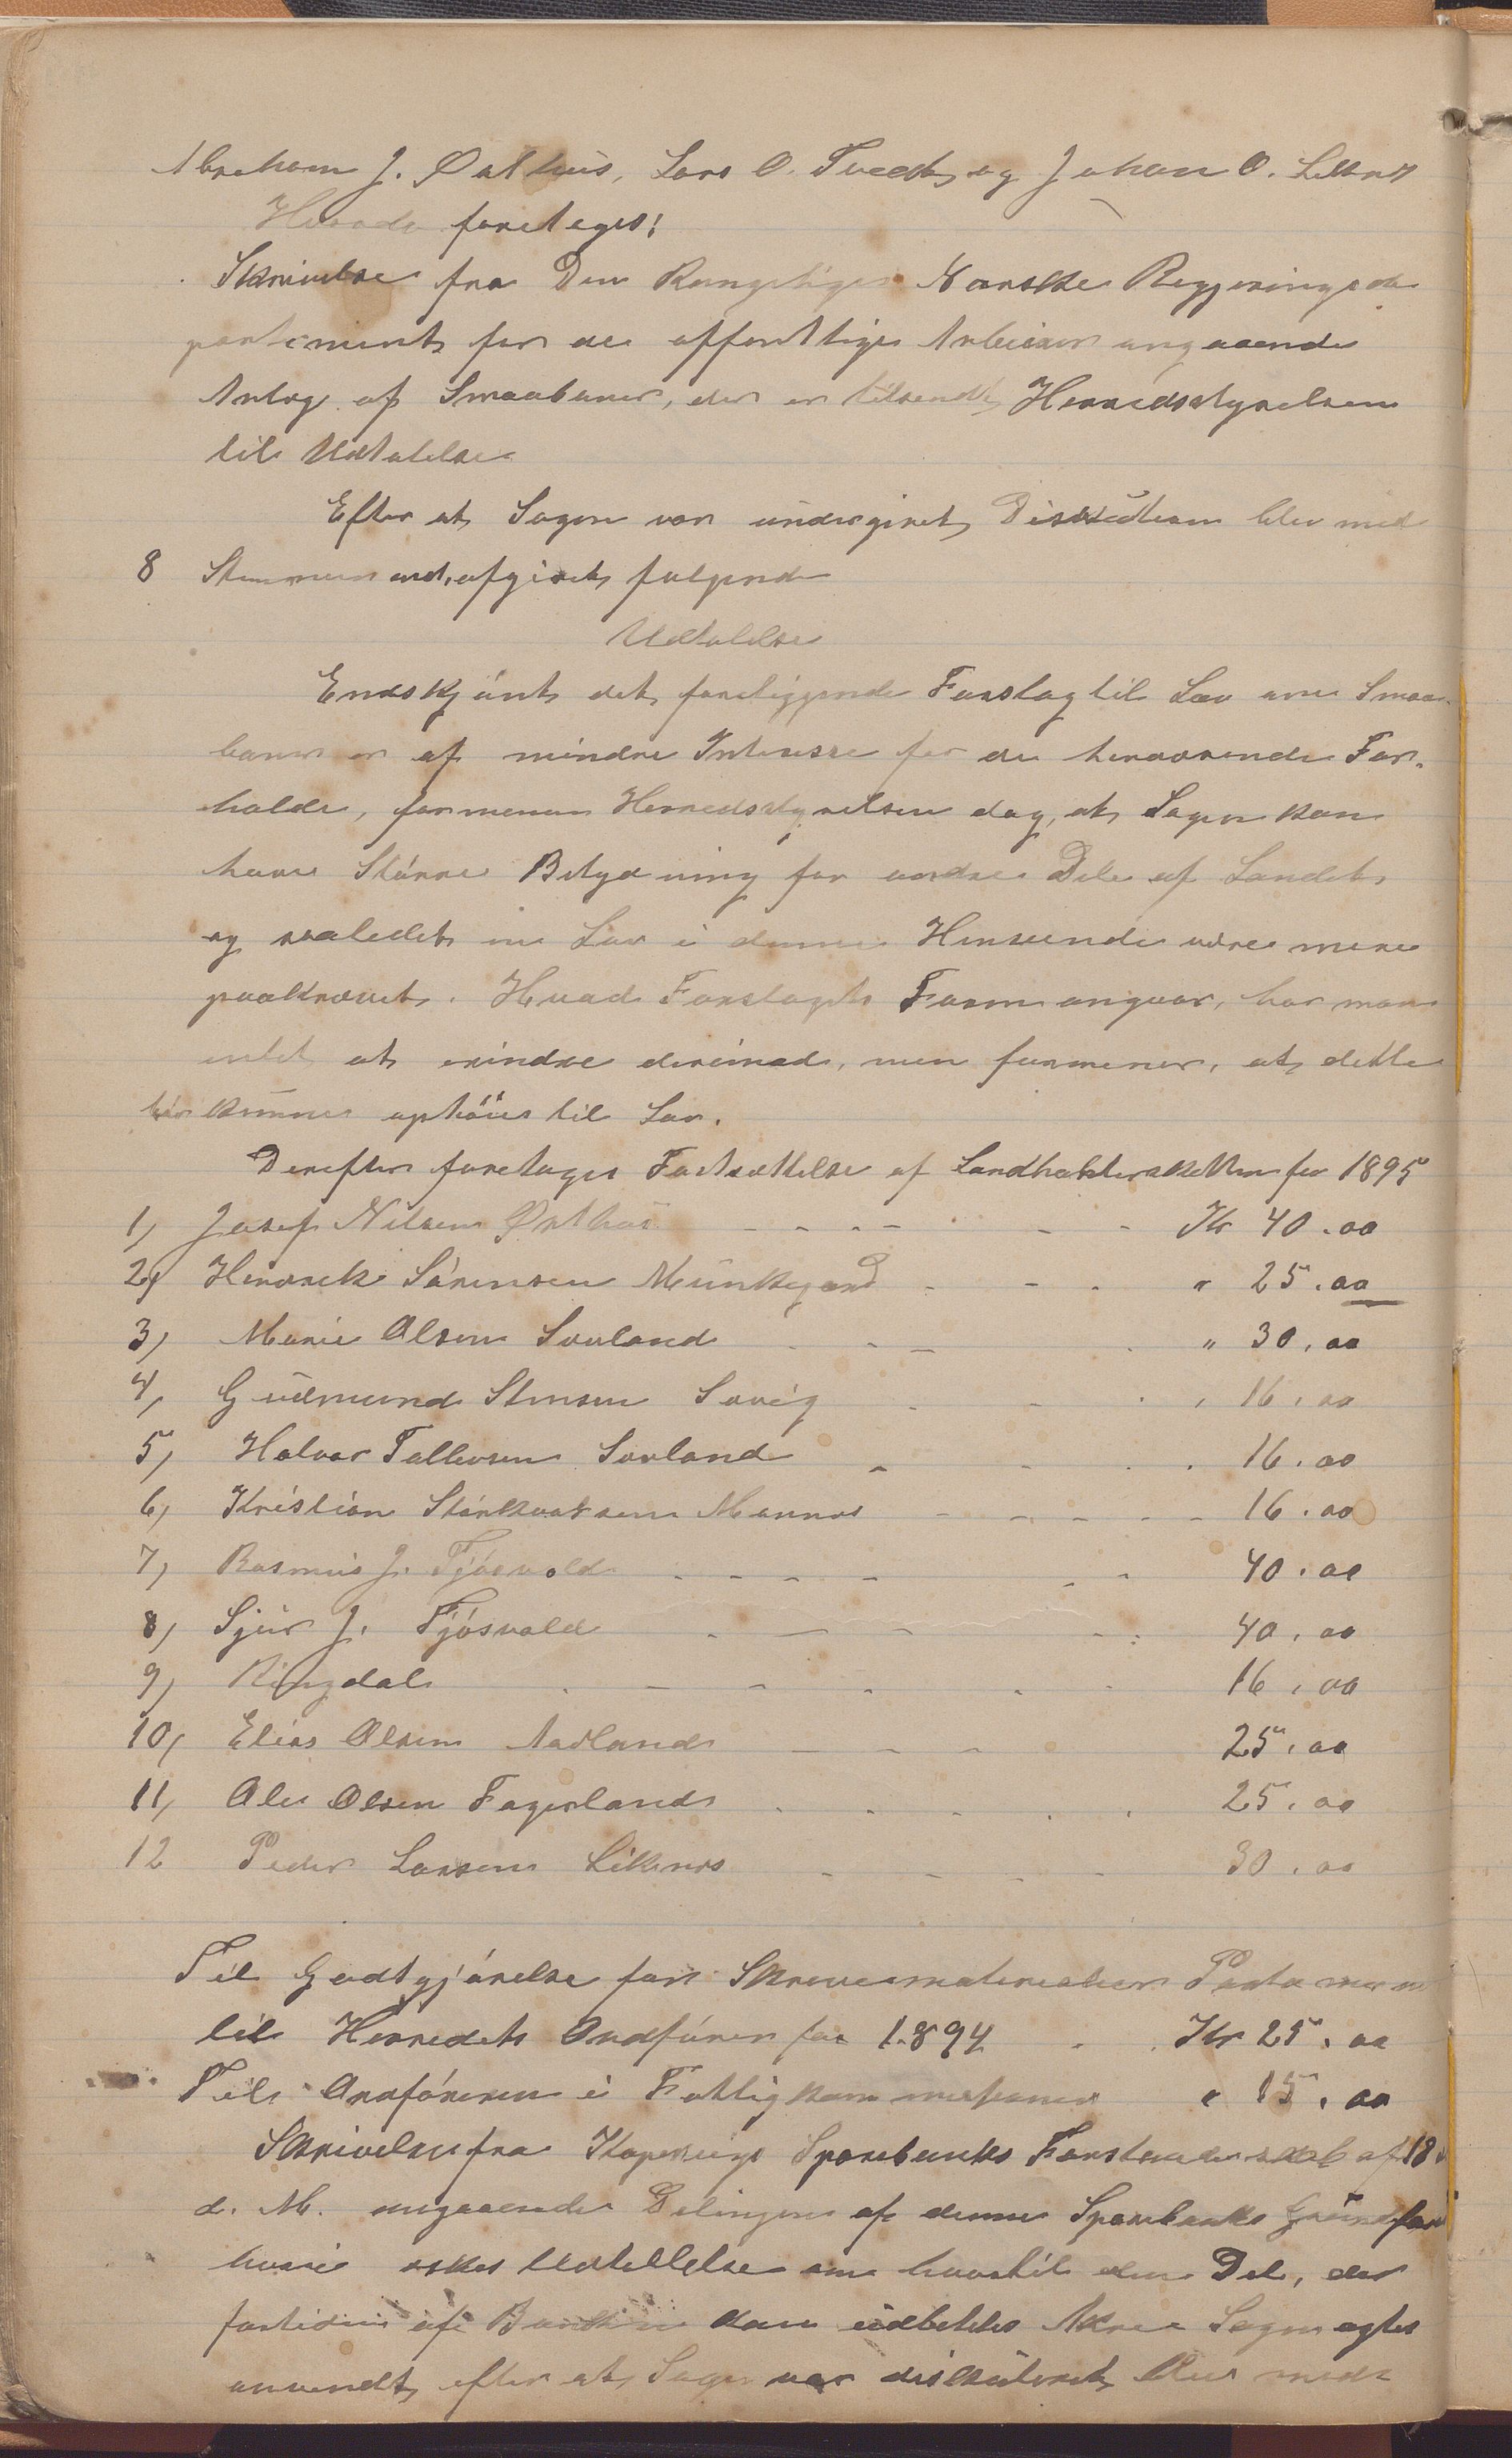 Abraham J. Østhus, Lars O. Tvedt, og Johan O.
Hvorda foretages:
Skrivelse fra Den Kongelige Norske Regjeringsde
partement for de offentlige Arbeider angaaende
Anlæg af Smaabaner, der er tilsendt Herredsstyrelsen
til Udtalelse
Efter at Sagen var undergivet Diskution blev med
8 Stemmer afgivet følgende
Udtalelse
Endskjønt det foreliggende Forslag til Lov om Smaa-
baner er af mindre Interesse for de herværende For-
holde, formener Herredsstyrelsen dog, at Sagen kan
have Større Betydning for andre Dele af Landet
og saaledes en Lov i denne Henseende være mere
paakrævet. Hvad Forslagets Form angaar, har man
intet at erindre derimod, men formener, at dette
bør kunne ophøies til Lov.
Derefter foretages Fastsættelse af Landhandlerskatten for 1895
1, Josef Nilsen Østhus - - - - Kr 40.00
2, Hendrek Sørensen Munkejord - - - " 25.00
3, Marie Olsen Sørland - - " 30.00
4, Gudmund Stensen Søvig - - " 16.00
5, Halvor Tallevsen Sørland - - 16.00
6, Kristian Størkvorsen Mannes - - - - 16.00
7, Rasmus J. Fjøsvold - - - - 40.00
8, Sjur J. Fjøsvold - - - 40.00
9, Ringdal - - - 16.00
10, Elias Olsen Aadland - - - 25.00
11, Ole Olsen Fagerland - - - 25.00
12 Peder Larsen Liknes - - - 30.00
Til Godtgjørelse for Skrivematerialier Porto m m
til Herredets Ordfører for 1894 . . Kr 25.00
Til Ordføreren i Fattigkommissionen " 15.00
Skrivelse fra Kopervigs Sparebanks Forstanderskab af 18
d. M. angaaende Delingen af denne Sparebanks Grundfon
hvori øskes Udtallelse om hvortil den Del, der
fortiden af Banken kan udbetales Akre Sogn agtes
anvendt, efter at Sagen var diskuteret blev med